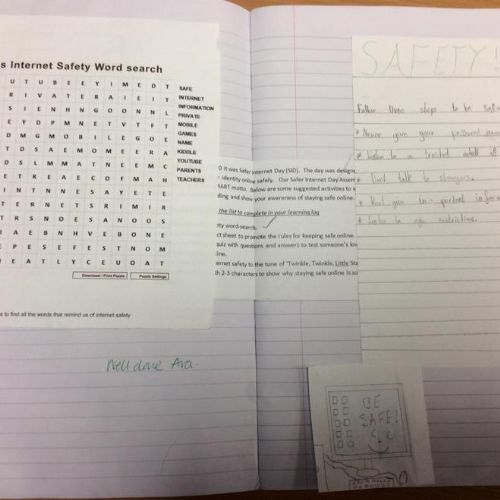 s Internet Safety Word search
U T U B E E Y I M E D T
R I V A T E R A I E I T
S I E N H N G O O N N L
E Y D P M N E T V T F T
D M G M O B I L E G O E
T D S A E M O M E E R A
D S L M M A T N E E M C
E T R E A E C O F M A H
I N T N N E S A Y E T E
T E R N E T S R I M I R
T R S N O E S A N O O S
B A E B N H V E B O N E
E P E S E F E S T N O M
E A T L Y C E U O A T
SAFE
INTERNET
INFORMATION
PRIVATE
MOBILE
GAMES
NAME
KIDDLE
YOUTUBE
PARENTS
TEACHERS
Download / Print Puzzle
Puzzle Settings
s to find all the words that remind us of internet safety
Well done Ava.
it was Safer Internet Day (SID). The day was designe
identity online safely. Our Safer Internet Day Assem
MART motto. Below are some suggested activities to
ding and show your awareness of staying safe online.
the list to complete in your learning log
ty word-search.
ct sheet to promote the rules for keeping safe online.
quiz with questions and answers to test someone's kno
line.
ernet safety to the tune of 'Twinkle, Twinkle, Little Sta
th 2-3 characters to show why staying safe online is so
SAFETY!
Follow these steps to be safe
* Never give your password
* Listen to a trusted adult
* Don't talk to strangers.
* age restrictions.
BE
SAFE!